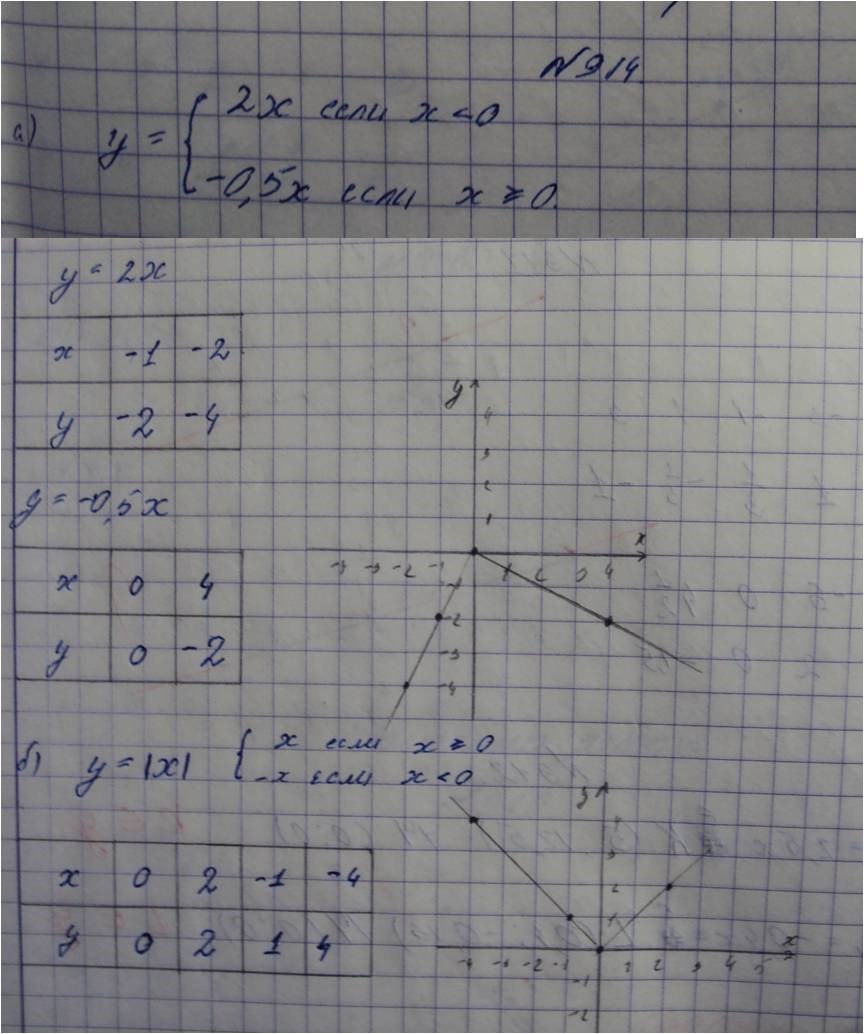 №914
а) y = { 2x если x < 0
-0,5x если x ≥ 0.
y = 2x
x -1 -2
y -2 -4
y = -0,5x
x 0 4
y 0 -2
y
4
3
2
1
x
-2 -1 1 2 4
-1
-2
-3
-4
б) y = |x| { x если x ≥ 0
-x если x < 0
x 0 2 -1 -4
y 0 2 1 4
y
4
3
2
1
x
-4 -3 -2 -1 1 2 3 4 5
-1
-2